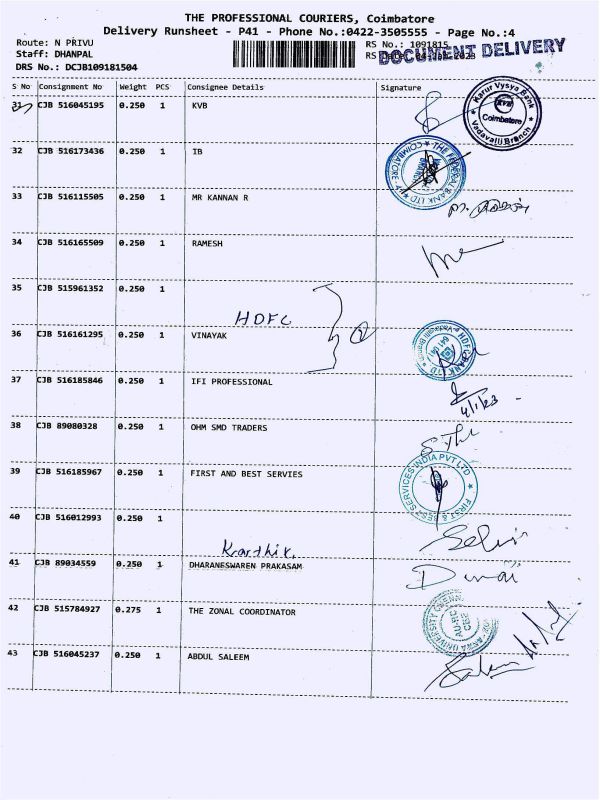 THE PROFESSIONAL COURIERS, Coimbatore
Delivery Runsheet - P41 - Phone No.:0422-3505555 - Page No.:4
Route: N PRIVU
Staff: DHANPAL
DRS No.: DCJB109181504
RS No.: 1091815
DOCUMENT DELIVERY
S No Consignment No Weight PCS Consignee Details Signature
31 CJB 516045195 0.250 1 KVB
Karur Vysya Bank
KVB
Coimbatore
Vadavalli Branch
32 CJB 516173436 0.250 1 IB
THE FEDERAL BANK LTD
COIMBATORE
33 CJB 516115505 0.250 1 MR KANNAN R
34 CJB 516165509 0.250 1 RAMESH
35 CJB 515961352 0.250 1
HDFC
36 CJB 516161295 0.250 1 VINAYAK
2
HDFC BANK LTD
Vadavalli Branch
641 041
37 CJB 516185846 0.250 1 IFI PROFESSIONAL
4/1/23
38 CJB 89080328 0.250 1 OHM SMD TRADERS
39 CJB 516185967 0.250 1 FIRST AND BEST SERVIES
FIRST & BEST SERVICES INDIA PVT LTD
40 CJB 516012993 0.250 1
Selvi
Karthik.
41 CJB 89034559 0.250 1 DHARANESWAREN PRAKASAM
42 CJB 515784927 0.275 1 THE ZONAL COORDINATOR
43 CJB 516045237 0.250 1 ABDUL SALEEM
Saleem